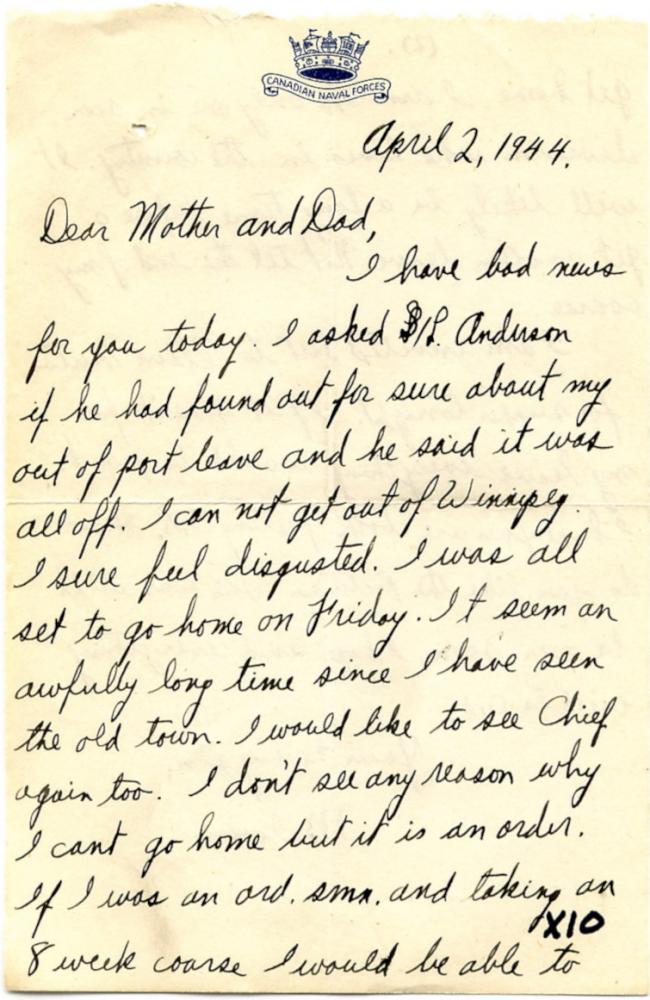 CANADIAN NAVAL FORCES
April 2, 1944.
Dear Mother and Dad,
I have bad news
for you today. I asked Anderson
if he had found out for sure about my
out of port leave and he said it was
all off. I can not get out of Winnipeg.
I sure feel disgusted. I was all
set to go home on Friday. It seem an
awfully long time since I have seen
the old town. I would like to see Chief
again too. I don't see any reason why
I cant go home but it is an order.
If I was an ord. smn. and taking an
X10
8 week coarse I would be able to